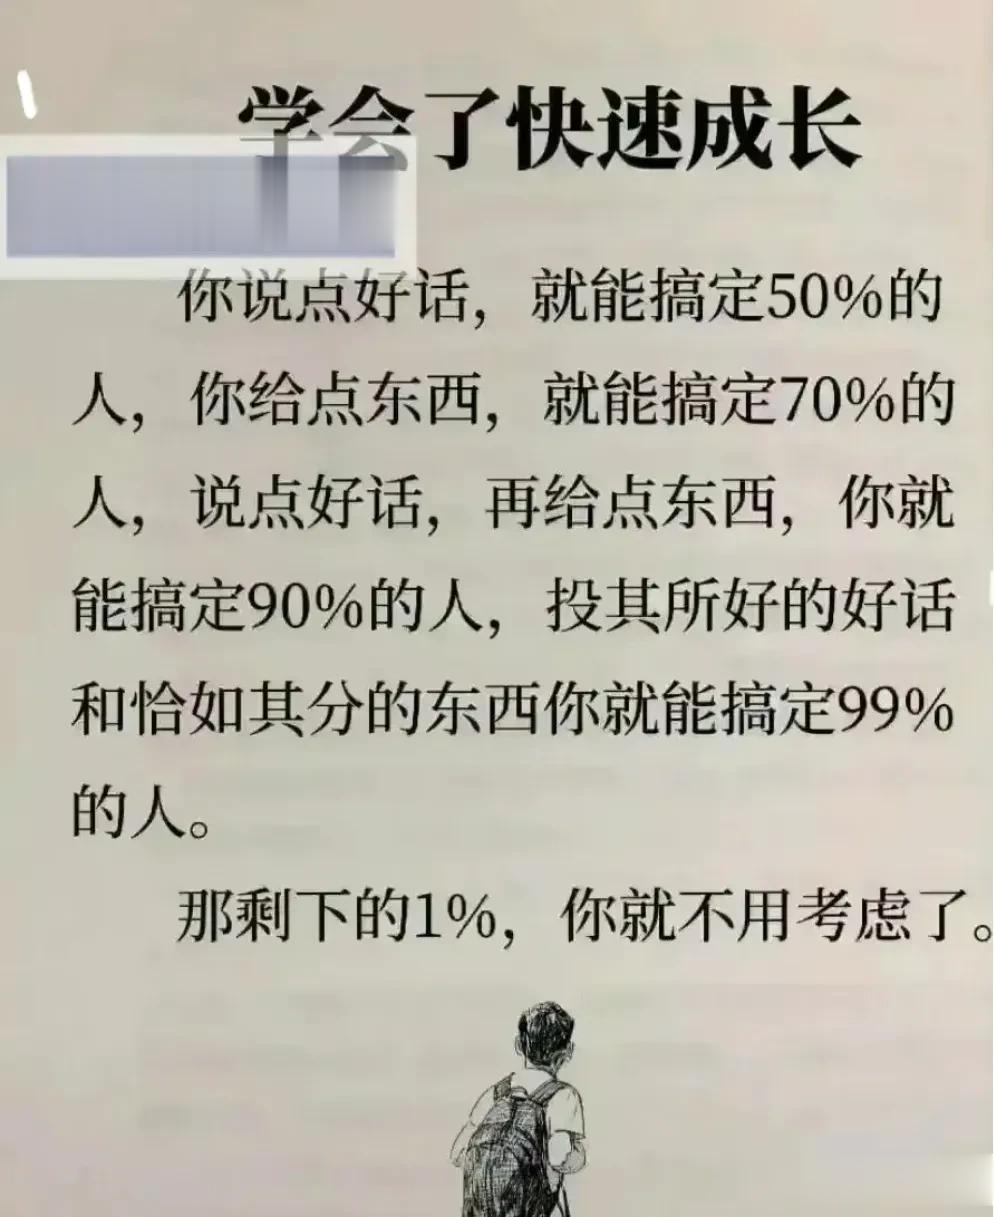 学会了快速成长
你说点好话，就能搞定50%的
人，你给点东西，就能搞定70%的
人，说点好话，再给点东西，你就
能搞定90%的人，投其所好的好话
和恰如其分的东西你就能搞定99%
的人。
那剩下的1%，你就不用考虑了。